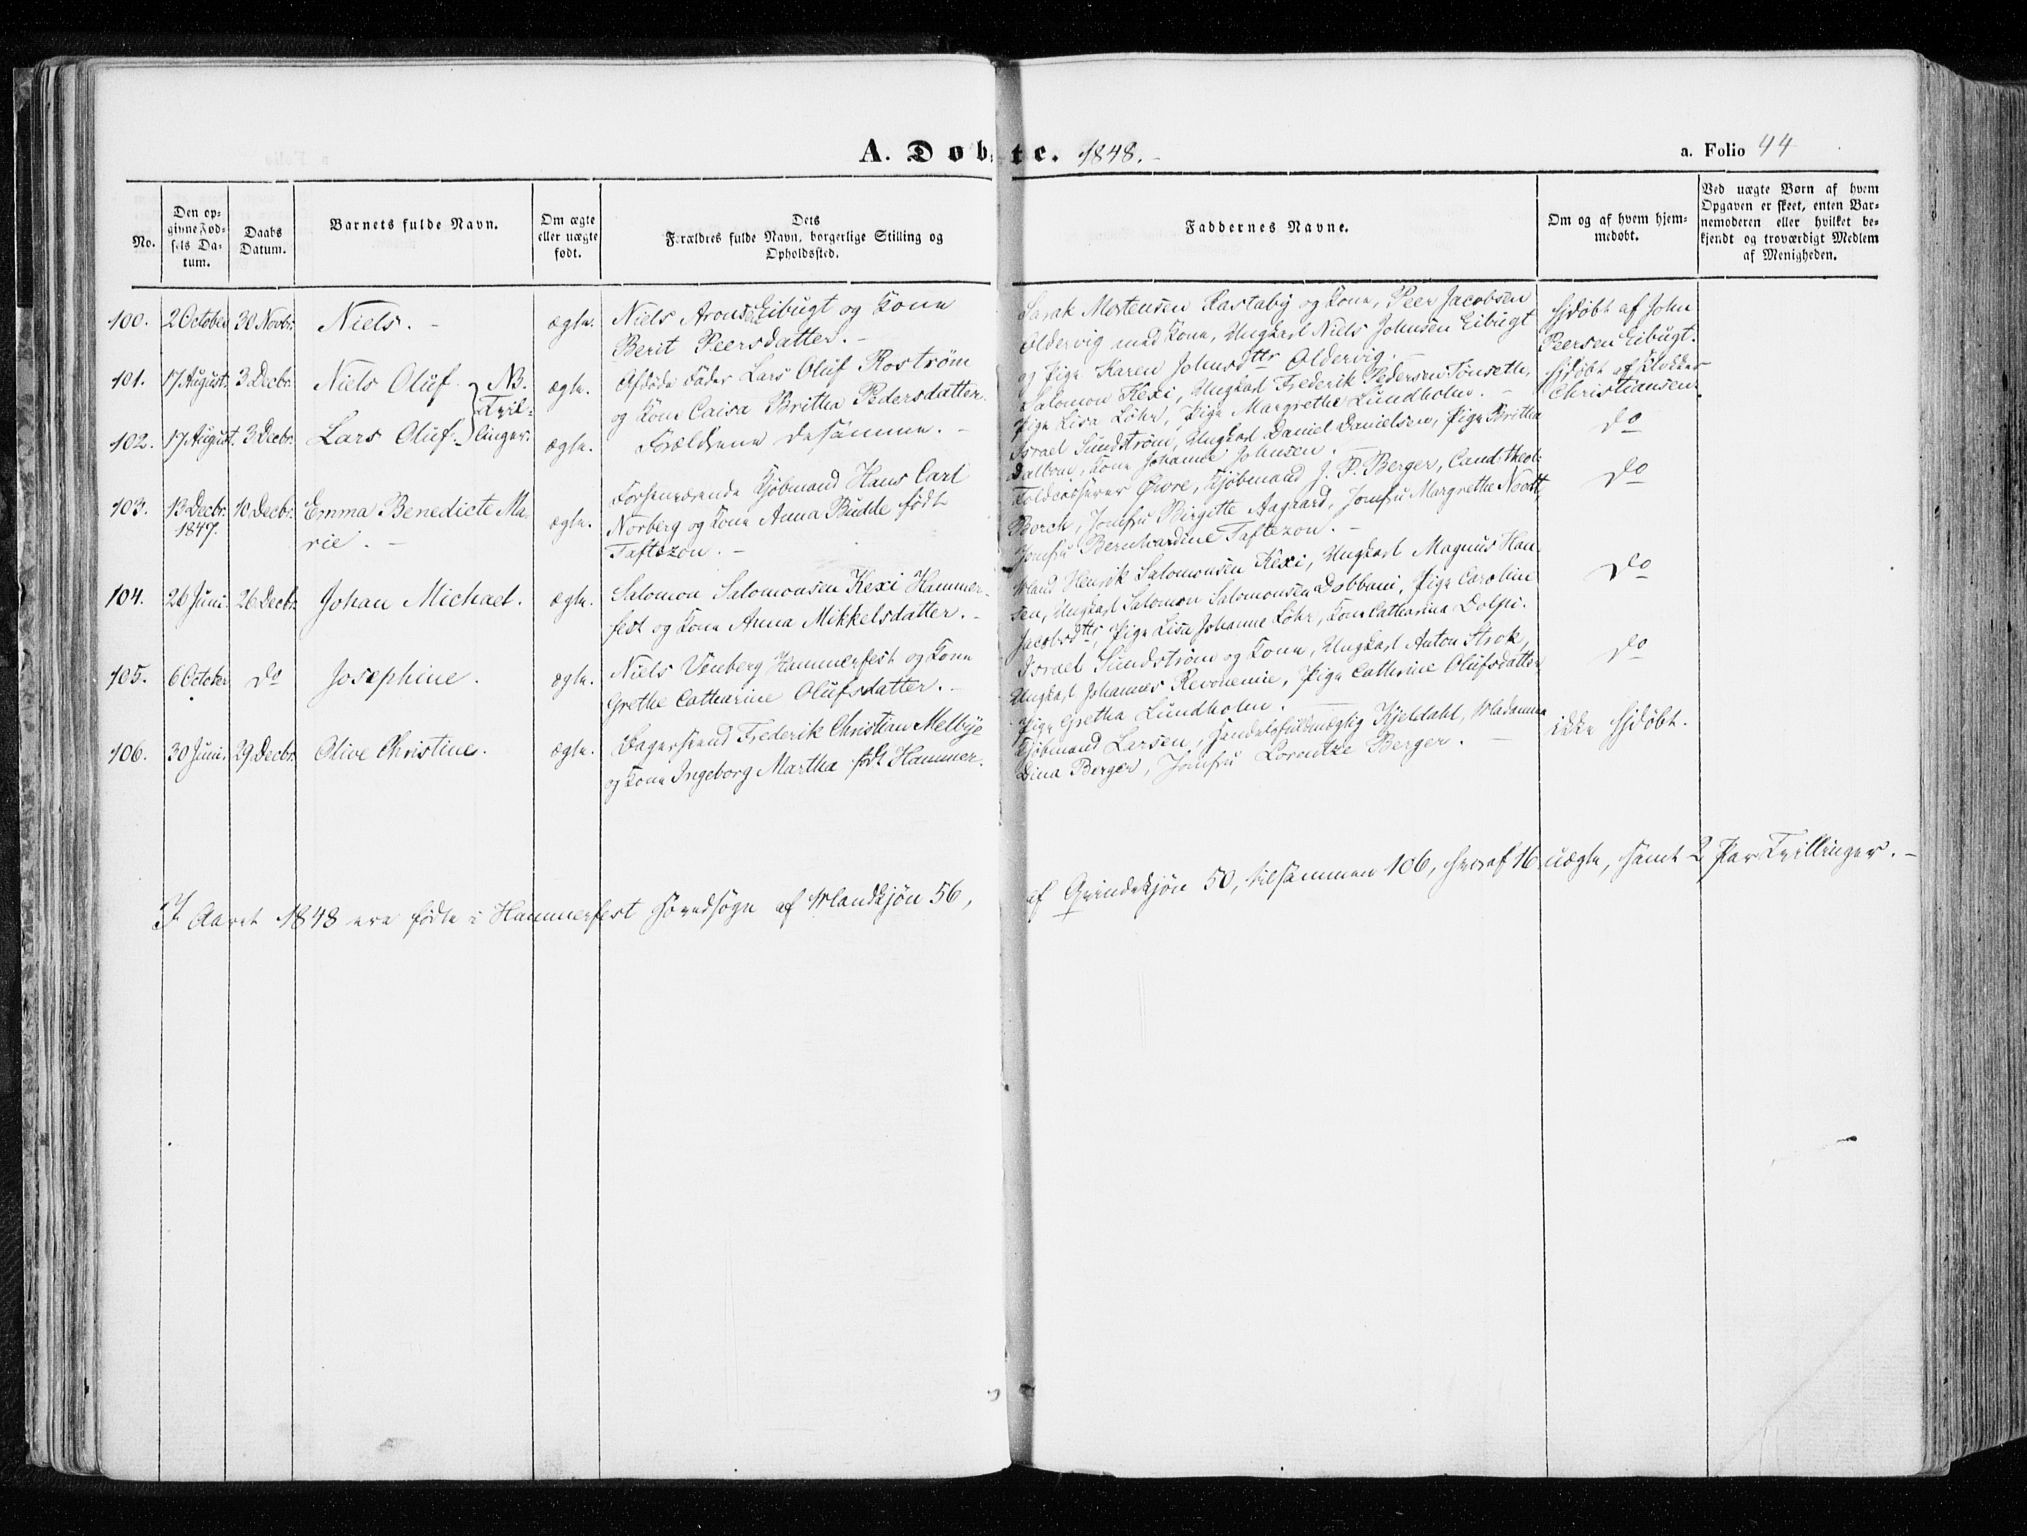 A. Døbte. 1848.-
a. Folio 44
No.
Den opgivne Fødsels Datum.
Daabs Datum.
Barnets fulde Navn.
Om ægte eller uægte født.
Dets Forældres fulde Navn, borgerlige Stilling og Opholdssted.
Faddernes Navne.
Om og af hvem hjemmedøbt.
Ved uægte Børn af hvem Opgaven er skeet, enten Barnemoderen eller hvilket bekjendt og troværdigt Medlem af Menigheden.
100. 2 October 30 Novbr. Niels. - ægte. Niels Arons Eibugt og Kone
Berit Peersdatter. -
Sarak Mortensen Kastaby og Kone, Peer Jacobsen
Oldervig med Kone, Ungkarl Niels Johnsen Eibugt
og Pige Karen Johnsdttr Oldervig. -
hjdøbt af John
Peersen Eibugt.
101. 17 August. 3 Decbr. Niels Oluf. NB. ægte. Afdøde Fader Lars Oluf Roström
og Kone Caisa Britha Pedersdatter.
Salomon Kexi, Ungkarl Frederik Pedersen Tønseth,
Pige Lisa Löhr, Pige Margrethe Lundholm. -
hjdøbt af
Christiansen.
102. 17 August. 3 Decbr. Lars Oluf. Tvillinger. ægte. Forældrene desamme. -
Israel Sundström, Ungkarl Daniel Danielsen, Pige Britha
Dalbom, Kone Johanne Johnsen. -
do
103. 13 Decbr. 1847. 10 Decbr. Emma Benedicte Ma-
rie. - ægte. Forhenværende Kjøbmand Hans Carl
Norberg og Kone Anna Budde født
Taftezon. -
Toldcasserer Øvre, Kjøbmand J. P. Berger, Cand. theol.
Borch, Jomfru Birgitte Aagaard, Jomfru Margrethe Nodtt,
Jomfru Bernhardine Taftezon. -
do
104. 26 Juni. 26 Decbr. Johan Michael. ægte. Salomon Salomonsen Kexi Hammer-
fest og Kone Anna Mikkelsdatter. -
Mand Henrik Salomonsen Kexi, Ungkarl Magnus Han-
sen, Ungkarl Salomon Salomonsen Dobbani, Pige Caroline
Jacobsdttr, Pige Lisa Johanne Löhr, Kone Catharina Dolpi.
do
105. 6 October do Josephine. ægte. Niels Venberg Hammerfest og Kone
Grethe Catharine Olufsdatter. -
Israel Sundström og Kone, Ungkarl Anton Strok,
Ungkarl Johannes Revonemie, Pige Catherine Olufsdatter
Pige Gretha Lundholm. -
do
106. 30 Juni. 29 Decbr. Olive Christine. ægte. Bagersvend Frederik Christian Melbye
og Kone Ingeborg Martha født Hammer.
Kjøbmand Larsen, Handelsfuldmægtig Kjeldahl, Madamme
Dina Berger, Jomfru Lorentze Berger. -
ikke hjdøbt.
I Aaret 1848 ere fødte i Hammerfest Hovedsogn af Mandkjøn 56, af Qvindekjøn 50, tilsammen 106, hvoraf 16 uægte, samt 2 Par Tvillinger. -